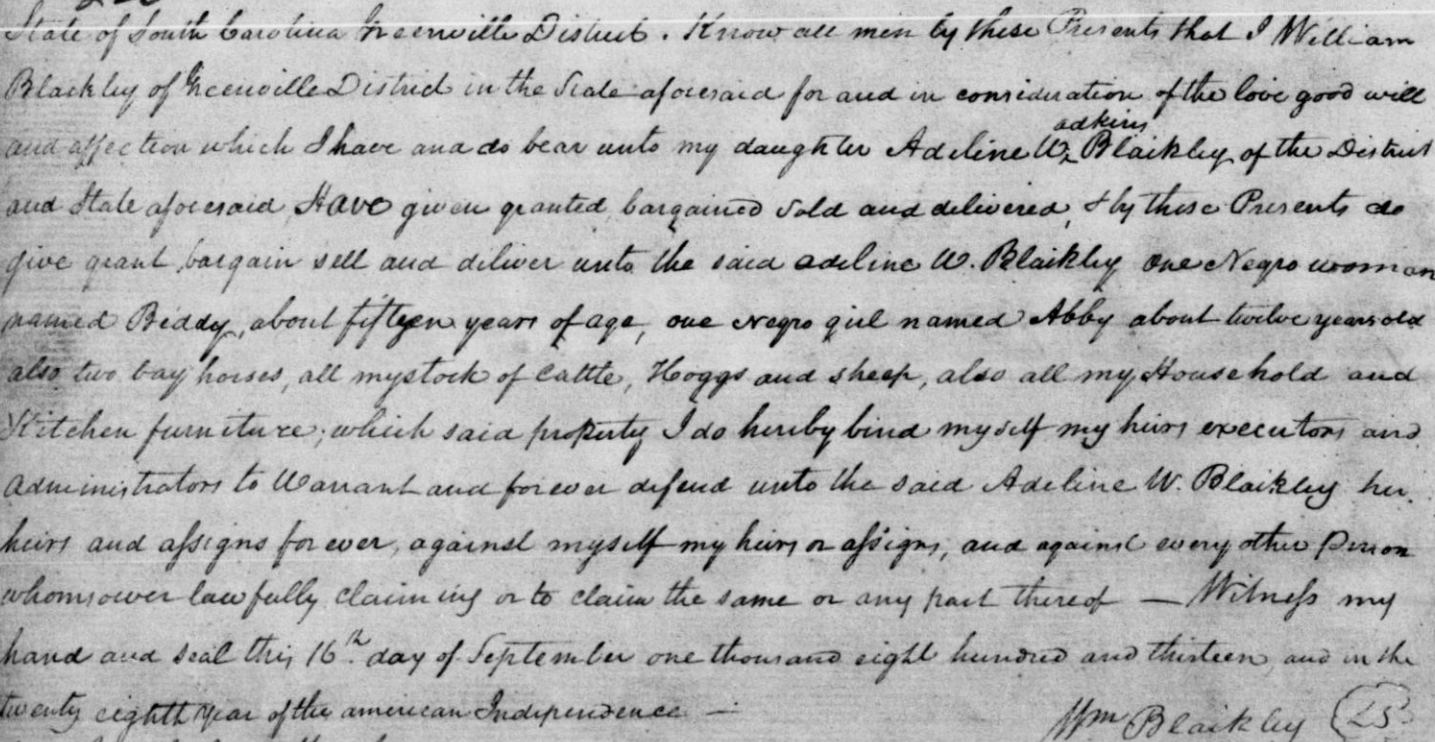 State of South Carolina Greenville District. Know all men by these Presents that I William
Blaikley of Greenville District in the State aforesaid for and in consideration of the love good will
adkins
and affection which I have and do bear unto my daughter Adeline W. Blaikley of the District
and State aforesaid, Have given granted, bargained sold and delivered, & by these Presents do
give grant bargain sell and deliver unto the said adeline W. Blaikley one Negro woman
named Biddy, about fifteen years of age, one negro girl named Abby about twelve years old
also two bay horses, all my stock of Cattle, Hoggs and sheep, also all my Household and
Kitchen furniture; which said property I do hereby bind myself my heirs executors and
administrators to Warrant and forever defend unto the said Adeline W. Blaikley her
heirs and assigns for ever, against myself my heirs or assigns, and against every other Person
whomsower lawfully claiming or to claim the same or any part thereof — Witness my
hand and seal this 16th day of September one thousand eight hundred and thirteen, and in the
twenty eighth year of the american Independence —
Wm Blaikley LS